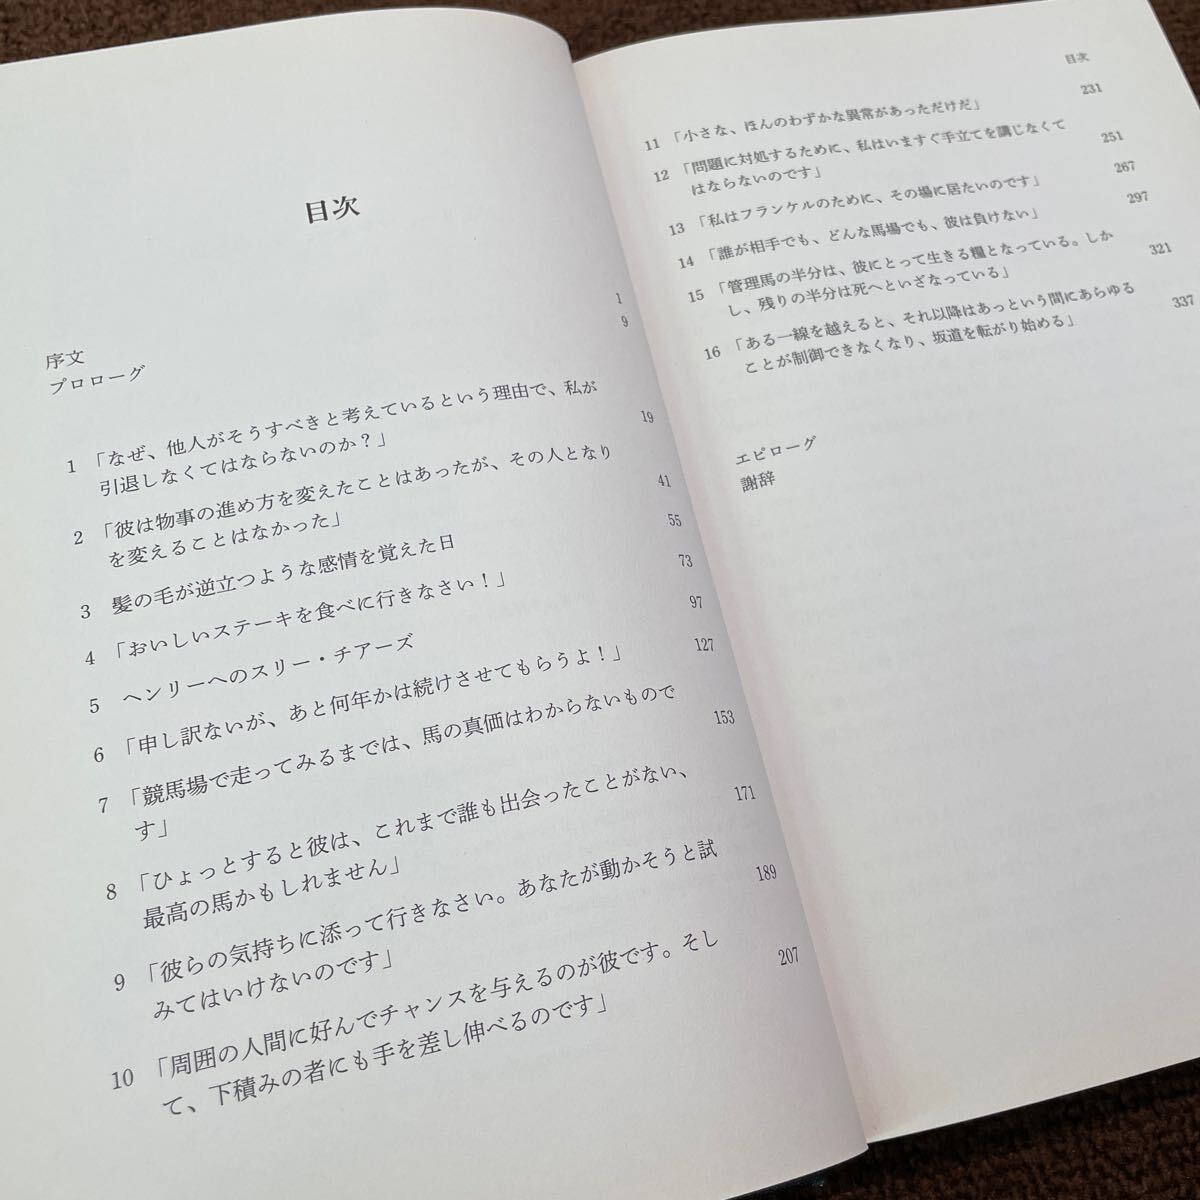 目次
序文 1
プロローグ 9
1 「なぜ、他人がそうすべきと考えているという理由で、私が
引退しなくてはならないのか？」 19
2 「彼は物事の進め方を変えたことはあったが、その人となり
を変えることはなかった」 41
3 髪の毛が逆立つような感情を覚えた日 55
4 「おいしいステーキを食べに行きなさい！」 73
5 ヘンリーへのスリー・チアーズ 97
6 「申し訳ないが、あと何年かは続けさせてもらうよ！」 127
7 「競馬場で走ってみるまでは、馬の真価はわからないもので
す」 153
8 「ひょっとすると彼は、これまで誰も出会ったことがない、
最高の馬かもしれません」 171
9 「彼らの気持ちに添って行きなさい。あなたが動かそうと試
みてはいけないのです」 189
10 「周囲の人間に好んでチャンスを与えるのが彼です。そし
て、下積みの者にも手を差し伸べるのです」 207
目次
11 「小さな、ほんのわずかな異常があっただけだ」 231
12 「問題に対処するために、私はいますぐ手立てを講じなくて
はならないのです」 251
13 「私はフランケルのために、その場に居たいのです」 267
14 「誰が相手でも、どんな馬場でも、彼は負けない」 297
15 「管理馬の半分は、彼にとって生きる糧となっている。しか
し、残りの半分は死へといざなっている」 321
16 「ある一線を越えると、それ以降はあっという間にあらゆる
ことが制御できなくなり、坂道を転がり始める」 337
エピローグ
謝辞